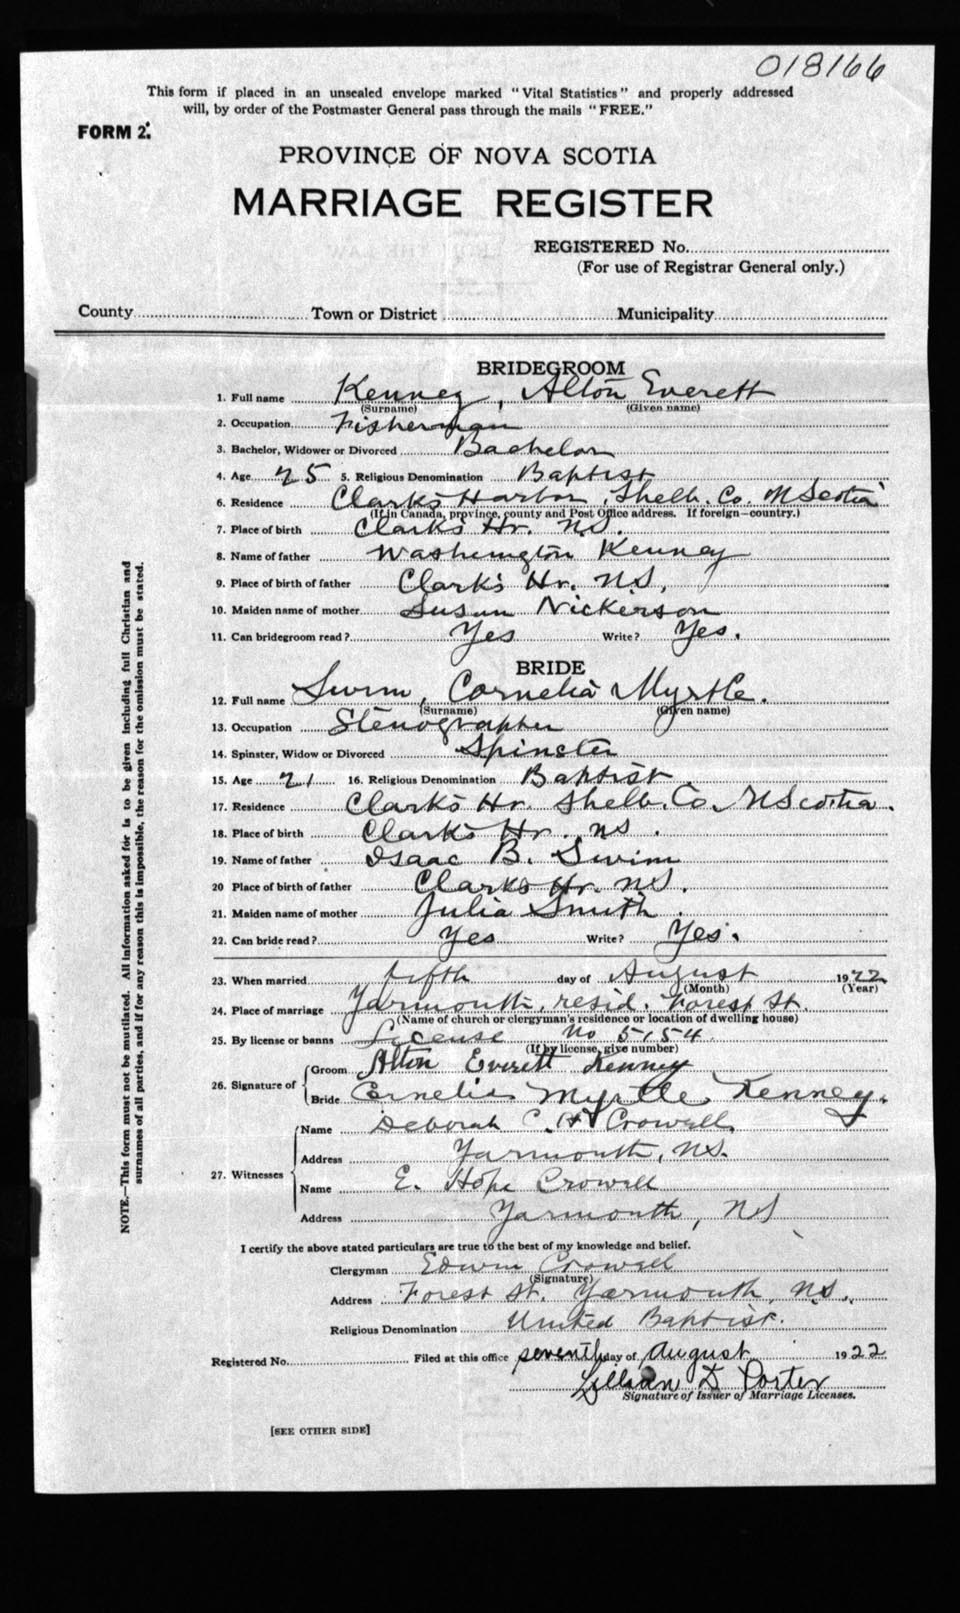 018166
This form if placed in an unsealed envelope marked "Vital Statistics" and properly addressed
will, by order of the Postmaster General pass through the mails "FREE."
FORM 2.
PROVINCE OF NOVA SCOTIA
MARRIAGE REGISTER
REGISTERED No.
(For use of Registrar General only.)
County Town or District Municipality
BRIDEGROOM
1. Full name Kenney, Alton Everett
(Surname) (Given name)
2. Occupation Fisherman
3. Bachelor, Widower or Divorced Bachelor
4. Age 25 5. Religious Denomination Baptist
6. Residence Clark's Harbor, Shelb. Co. N Scotia
(If in Canada, province, county and Post Office address. If foreign—country.)
7. Place of birth Clark's Hr. N.S.
8. Name of father Washington Kenney
9. Place of birth of father Clark's Hr. N.S.
10. Maiden name of mother Susan Nickerson
11. Can bridegroom read? Yes Write? Yes.
BRIDE
12. Full name Swim, Cornelia Myrtle.
(Surname) (Given name)
13. Occupation Stenographer
14. Spinster, Widow or Divorced Spinster
15. Age 21 16. Religious Denomination Baptist.
17. Residence Clark's Hr. Shelb. Co. N Scotia.
18. Place of birth Clark's Hr. NS.
19. Name of father Isaac B. Swim
20 Place of birth of father Clark's Hr. N.S.
21. Maiden name of mother Julia Smith.
22. Can bride read? Yes Write? Yes.
23. When married fifth day of August 1922
(Month) (Year)
24. Place of marriage Yarmouth, resid. Forest St.
(Name of church or clergyman's residence or location of dwelling house)
25. By license or banns License No 5154
(If by license, give number)
26. Signature of Groom Alton Everett Kenney
Bride Cornelia Myrtle Kenney.
27. Witnesses Name Deborah C. H. Crowell
Address Yarmouth, N.S.
Name E. Hope Crowell
Address Yarmouth, NS
I certify the above stated particulars are true to the best of my knowledge and belief.
Clergyman Edwin Crowell
(Signature)
Address Forest St. Yarmouth, N.S.
Religious Denomination United Baptist.
Registered No. Filed at this office seventh day of August 1922
Lillian D Porter
Signature of Issuer of Marriage Licenses.
[SEE OTHER SIDE]
NOTE.—This form must not be mutilated. All information asked for is to be given including full Christian and
surnames of all parties, and if for any reason this is impossible, the reason for the omission must be stated.